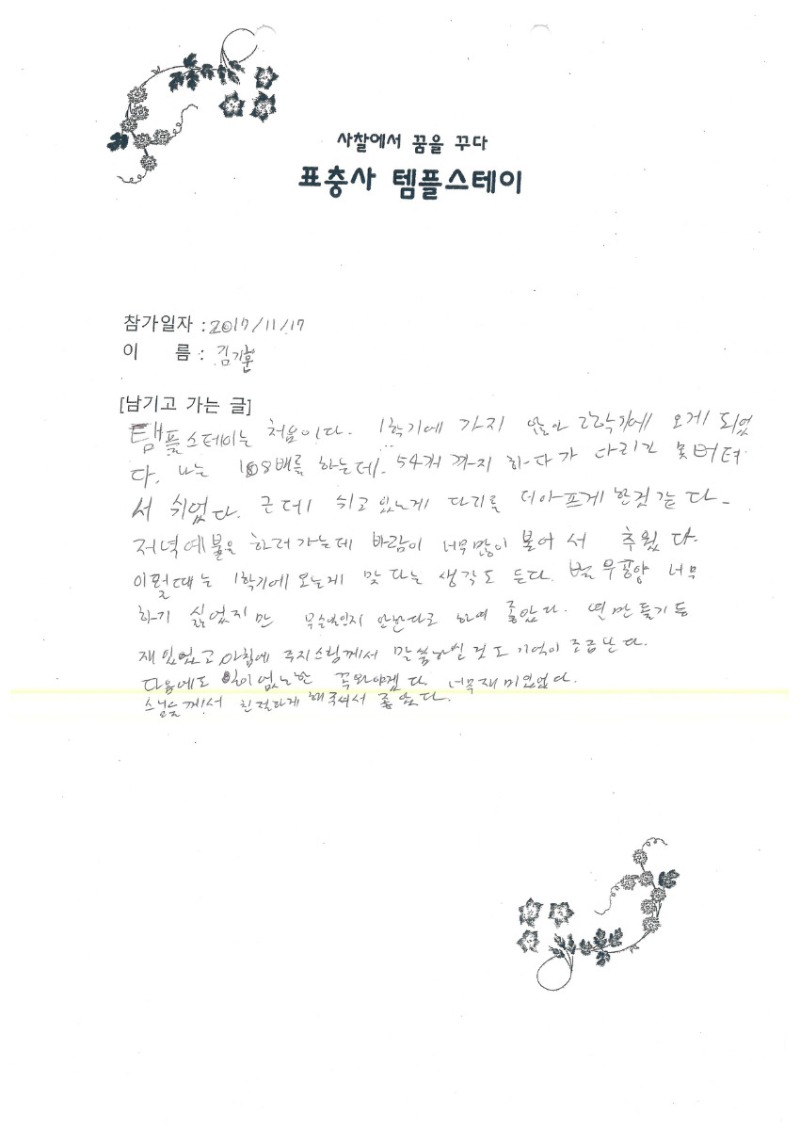 사찰에서 꿈을 꾸다
표충사 템플스테이
참가일자 : 2017/11/17
이 름 : 김기훈
[남기고 가는 글]
템플스테이는 처음이다. 1학기에 가지 않아 2학기에 오게 되었
다. 나는 108배를 하는데. 54개 까지 하다가 다리가 못버텨
서 쉬었다. 근데 쉬고 있는게 다리를 더아프게 한것 같다.
저녁예불을 하러가는데 바람이 너무많이 불어서 추웠다.
이럴때는 1학기에 오는게 맞다는 생각도 든다. 너무
하기 싫었지만 안한다로 하여 좋았다. 연만들기 등
재있었고 아침에 주지스림께서 말씀하신 것도 기억이 조금난다.
다음에도 일이 없는한 꼭와야겠다. 너무재미있었다.
스님들께서 친절하게 해주셔서 좋았다.